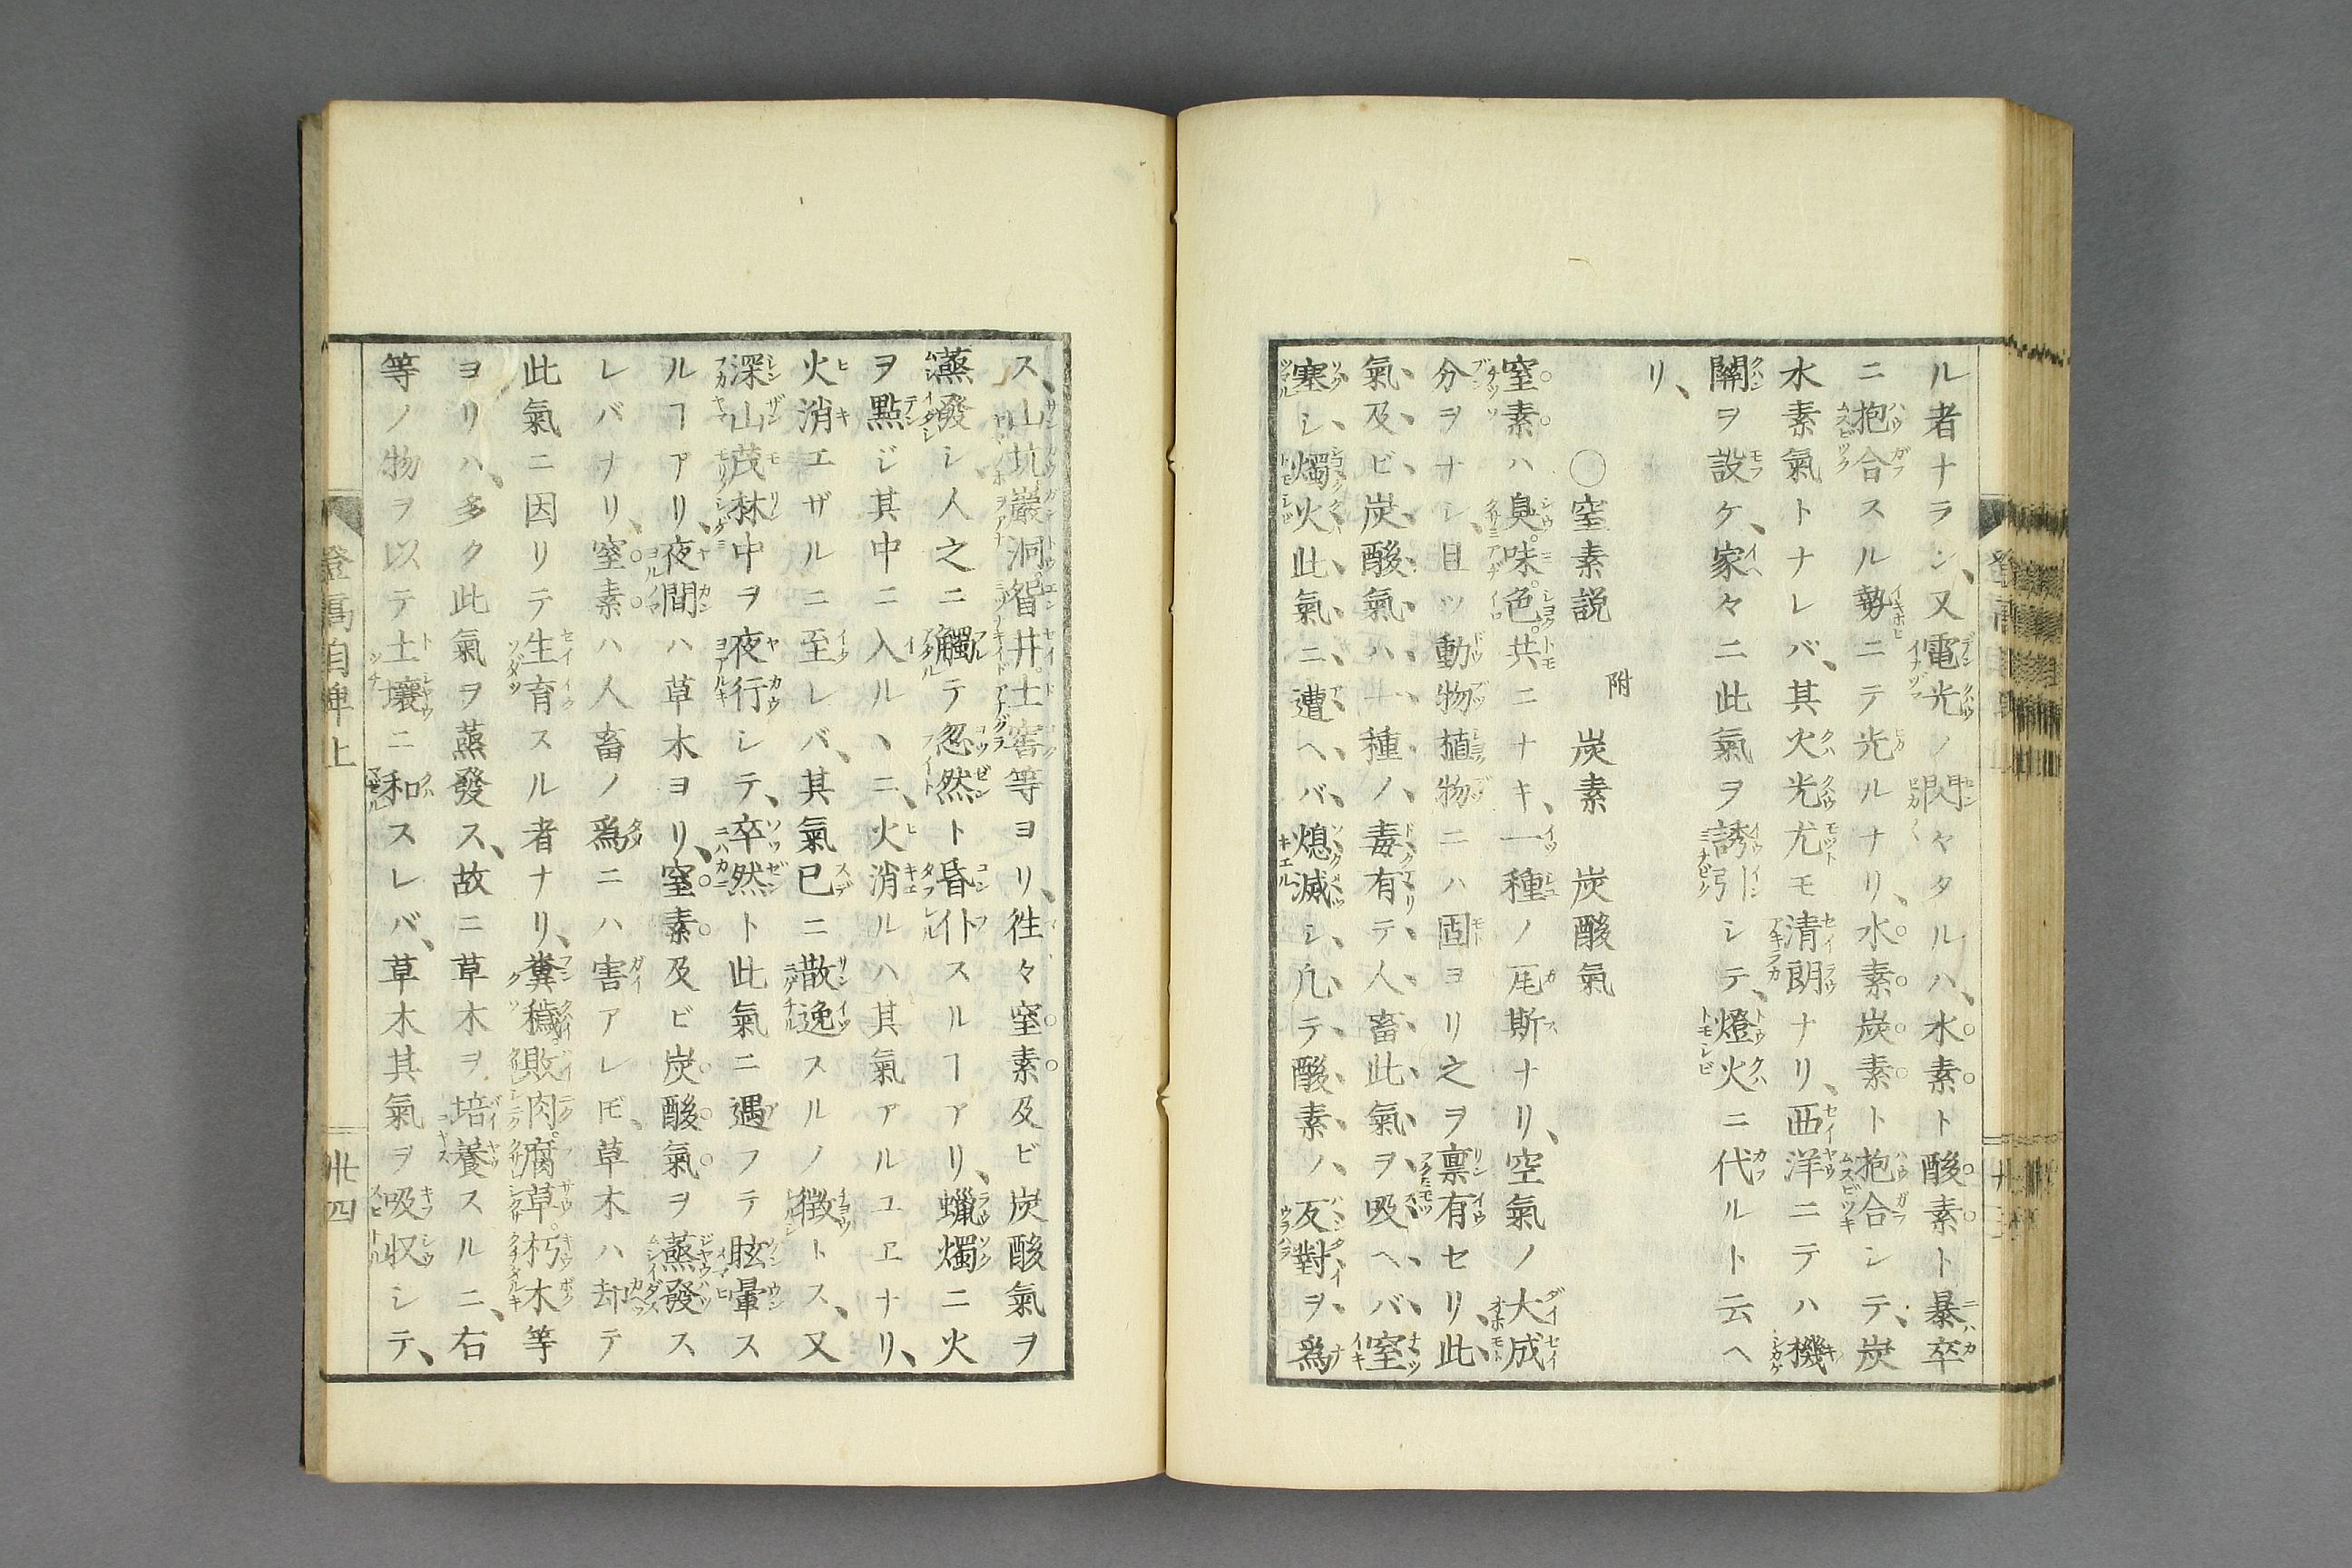 ル者ナラン、又電光ノ閃ヤタルハ、水素ト酸素ト暴卒
ニ抱合スル勢ニテ光ルナリ、水素炭素ト抱合シテ、炭
水素氣トナレバ、其火光尤モ清朗ナリ、西洋ニテハ機
關ヲ設ケ、家々ニ此氣ヲ誘引シテ、燈火ニ代ルト云ヘ
リ、
○窒素説 附 炭素 炭酸氣
窒素ハ臭味色共ニナキ、一種ノ瓦斯ナリ、空氣ノ大成
分ヲナシ、且ツ動物植物ニハ固ヨリ之ヲ稟有セリ、此
氣及ビ炭酸氣ハ一種ノ毒有テ人畜此氣ヲ吸ヘバ窒
塞シ燭火此氣ニ遭ヘバ熄滅シ凡テ酸素ノ反對ヲ爲
ス、山坑巖洞眢井土窖等ヨリ、徃々窒素及ビ炭酸氣ヲ
蒸發シ、人之ニ觸テ忽然ト昏仆スルヿアリ、蠟燭ニ火
ヲ點ジ其中ニ入ルヽニ、火消ルハ其氣アルユヱナリ、
火消エザルニ至レバ、其氣已ニ散逸スルノ徴トス、又
深山茂林中ヲ夜行シテ、卒然ト此氣ニ遇フテ眩暈ス
ルヿアリ、夜間ハ草木ヨリ、窒素及ビ炭酸氣ヲ蒸發ス
レバナリ、窒素ハ人畜ノ爲ニハ害アレ𪜈、草木ハ却テ
此氣ニ因リテ生育スル者ナリ、糞穢敗肉腐草朽木等
ヨリハ、多ク此氣ヲ蒸發ス、故ニ草木ヲ培養スルニ、右
等ノ物ヲ以テ土壤ニ和スレバ、草木其氣ヲ吸収シテ、
登高自卑 上 卅四